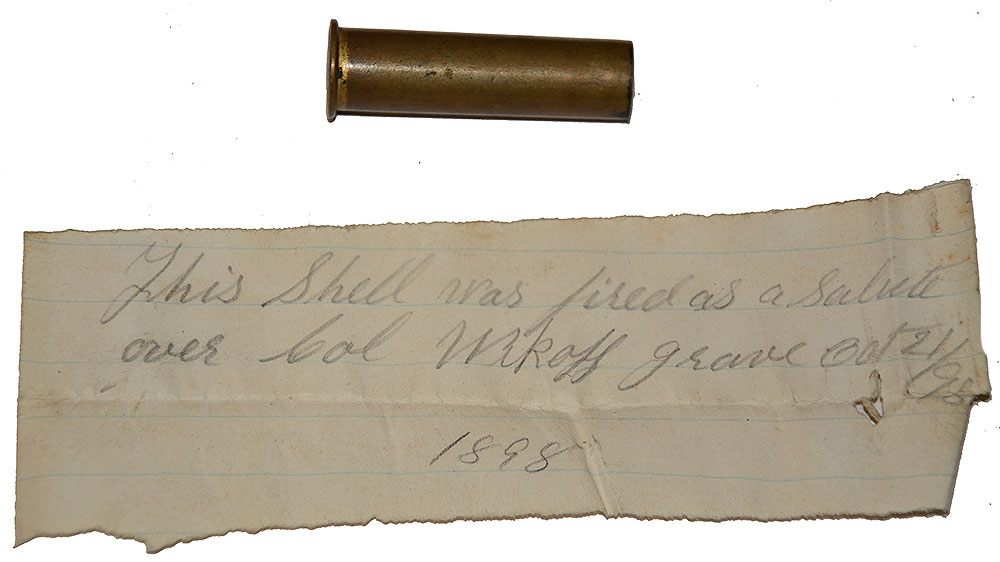 This Shell was fired as a Salute
over Col Wikoff grave Oct 21/98
1898